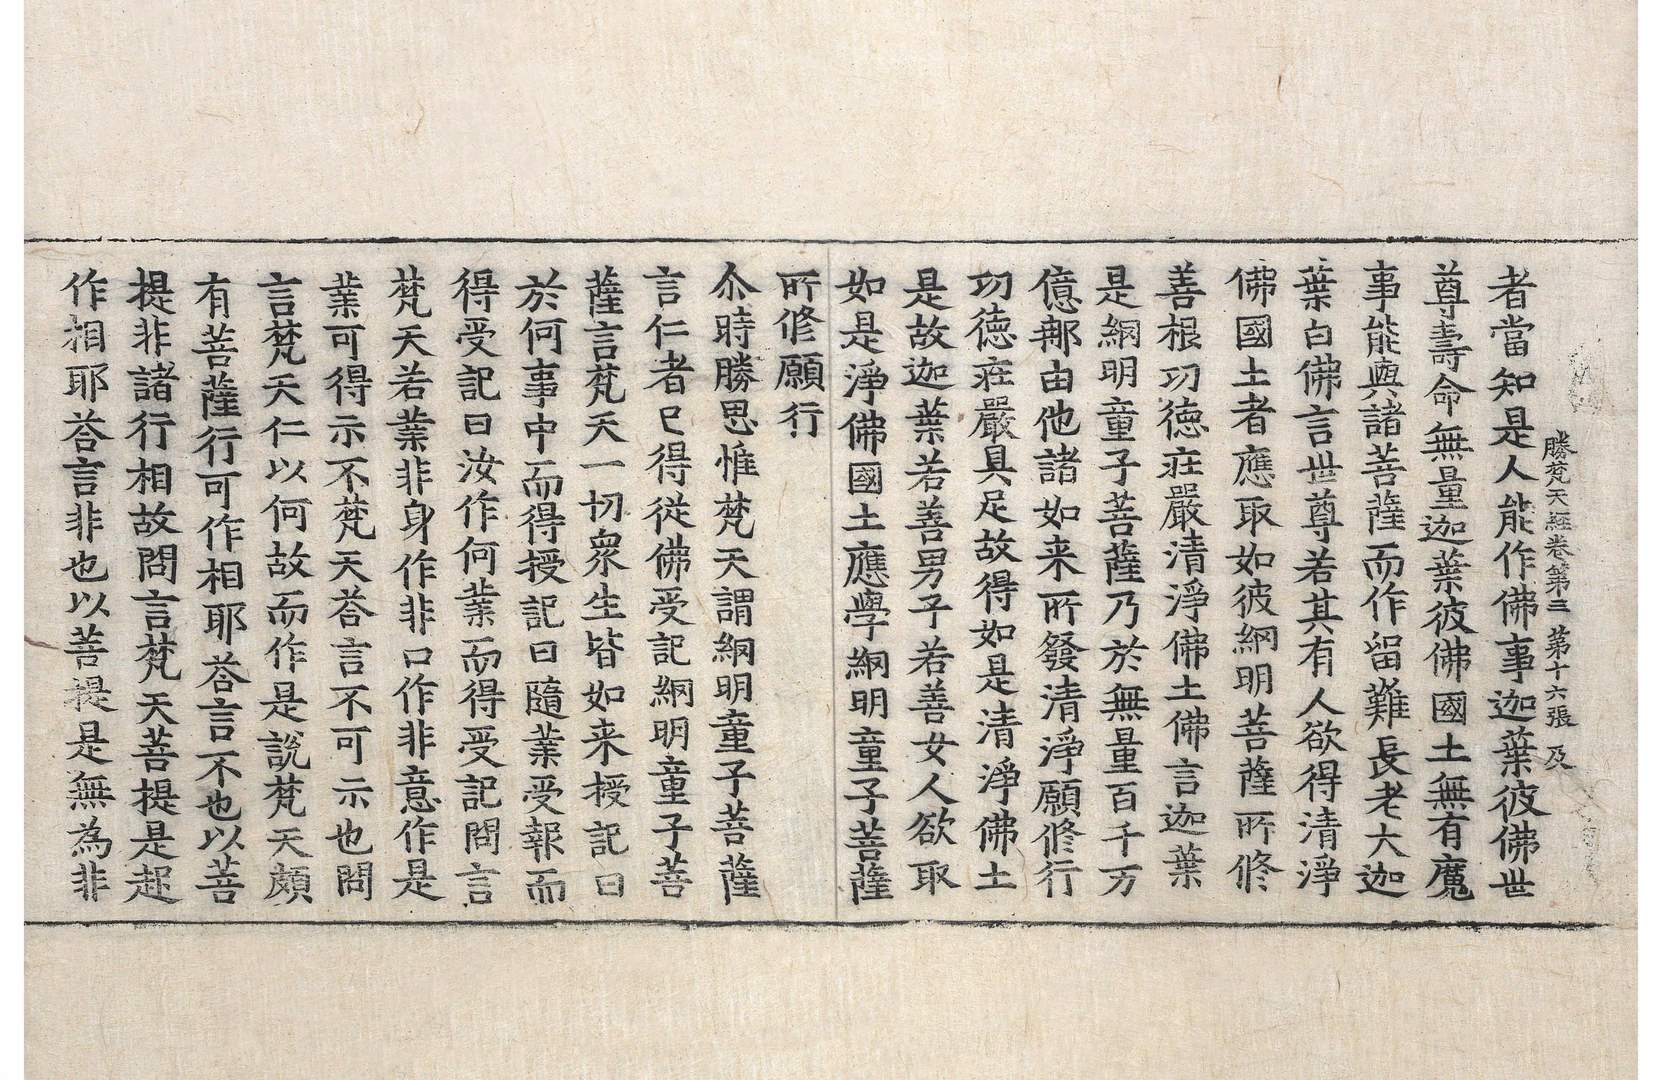 勝梵天經卷第三 第十六張 及
者當知是人能作佛事迦葉彼佛世
尊壽命無量迦葉彼佛國土無有魔
事能與諸菩薩而作留難長老大迦
葉白佛言世尊若其有人欲得清淨
佛國土者應取如彼網明菩薩所修
善根功德莊嚴清淨佛土佛言迦葉
是網明童子菩薩乃於無量百千万
億那由他諸如来所發清淨願修行
功德莊嚴具足故得如是清淨佛土
是故迦葉若善男子若善女人欲取
如是淨佛國土應學網明童子菩薩
所修願行
尒時勝思惟梵天謂網明童子菩薩
言仁者已得從佛受記網明童子菩
薩言梵天一切衆生皆如来授記曰
於何事中而得授記曰隨業受報而
得受記曰汝作何業而得受記問言
梵天若業非身作非口作非意作是
業可得示不梵天荅言不可示也問
言梵天仁以何故而作是說梵天頗
有菩薩行可作相耶荅言不也以菩
提非諸行相故問言梵天菩提是起
作相耶荅言非也以菩提是無為非